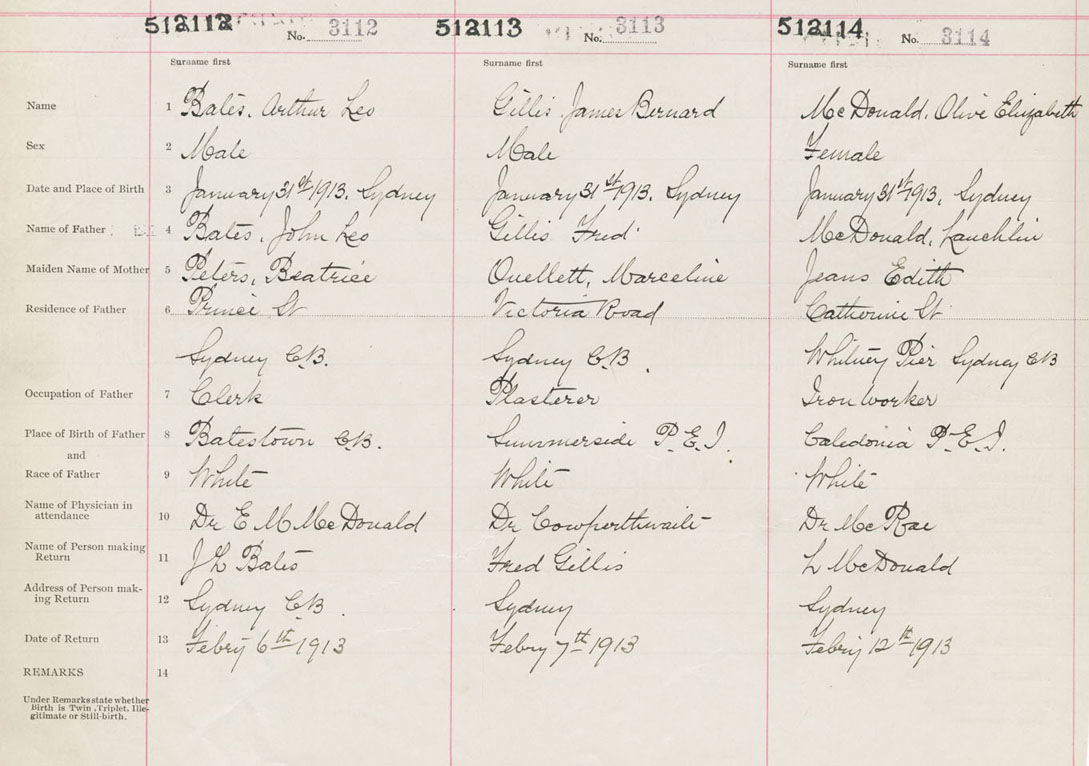 512112 No. 3112 512113 No. 3113 512114 No. 3114
Surname first Surname first Surname first
Name 1 Bates, Arthur Leo Gillis, James Bernard McDonald, Olive Elizabeth
Sex 2 Male Male Female
Date and Place of Birth 3 January 31st 1913, Sydney January 31st 1913, Sydney January 31st 1913, Sydney
Name of Father 4 Bates, John Leo Gillis Fred McDonald, Lauchlin
Maiden Name of Mother 5 Peters, Beatrice Ouellett, Marceline Jeans Edith
Residence of Father 6 Prince St Victoria Road Catherine St
Sydney C.B. Sydney C.B. Whitney Pier Sydney CB
Occupation of Father 7 Clerk Plasterer Iron Worker
Place of Birth of Father 8 Batestown C.B. Summerside P.E.I. Caledonia P.E.I.
and
Race of Father 9 White White White
Name of Physician in
attendance 10 Dr E M McDonald Dr Cowperthwaite Dr McRae
Name of Person making
Return 11 J L Bates Fred Gillis L McDonald
Address of Person mak-
ing Return 12 Sydney C.B. Sydney Sydney
Date of Return 13 Febry 6th 1913 Febry 7th 1913 Febry 12th 1913
REMARKS 14
Under Remarks state whether
Birth is Twin, Triplet, Ille-
gitimate or Still-birth.